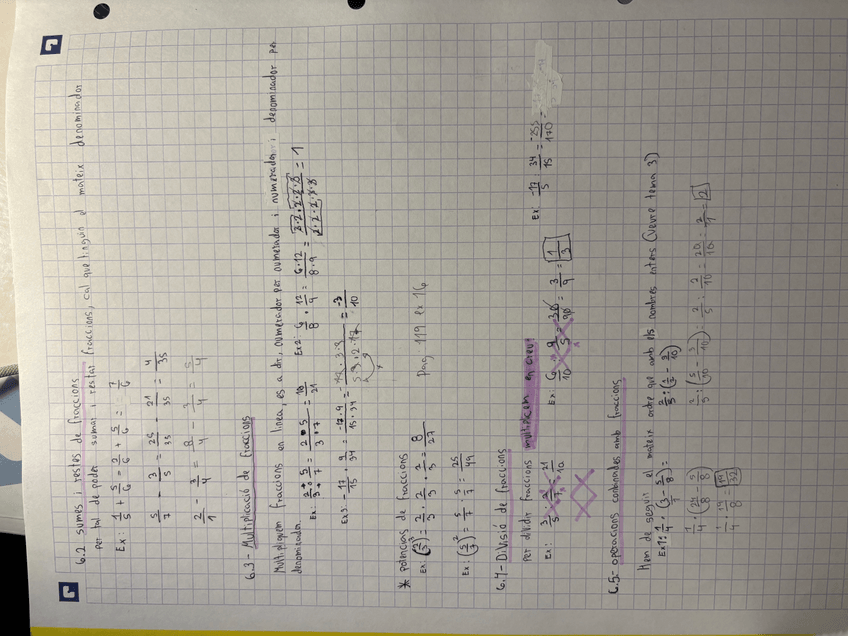 6.2 sumes i restes de fraccions
per tal de poder sumar i restar fraccions, cal que tinguin el mateix denominador
Ex: 1/3 + 5/6 = 2/6 + 5/6 = 7/6
5/7 - 3/5 = 25/35 - 21/35 = 4/35
2/1 - 3/4 = 8/4 - 3/4 = 5/4
6.3- Multiplicació de fraccions
Multipliquem fraccions en linea, es a dir, numerador per numerador i denominador per
denominador.
Ex: 2/3 · 5/7 = 2·5/3·7 = 10/21
Ex2: 6/8 · 12/9 = 6·12/8·9 = = 1
Ex3: -17/15 · 9/34 = -17·9/15·34 = = -3/10
* potencies de fraccions
Ex: (2/3)^3 = 2/3 · 2/3 · 2/3 = 8/27
Pag 119 ex 16
Ex: (5/7)^2 = 5/7 · 5/7 = 25/49
6.4- Divisió de fraccions
Per dividir fraccions multipliquem en creu:
Ex: 3/5 : 2/7 = 21/10
Ex: 6/10 : 9/5 = 30/90 = 3/9 = 1/3
Ex: -17/5 : 34/15 = -255/170 =
6.5- operacions combinades amb fraccions
Hem de seguir el mateix ordre que amb els nombres enters (veure tema 3)
2/5 : (1/2 - 3/10)